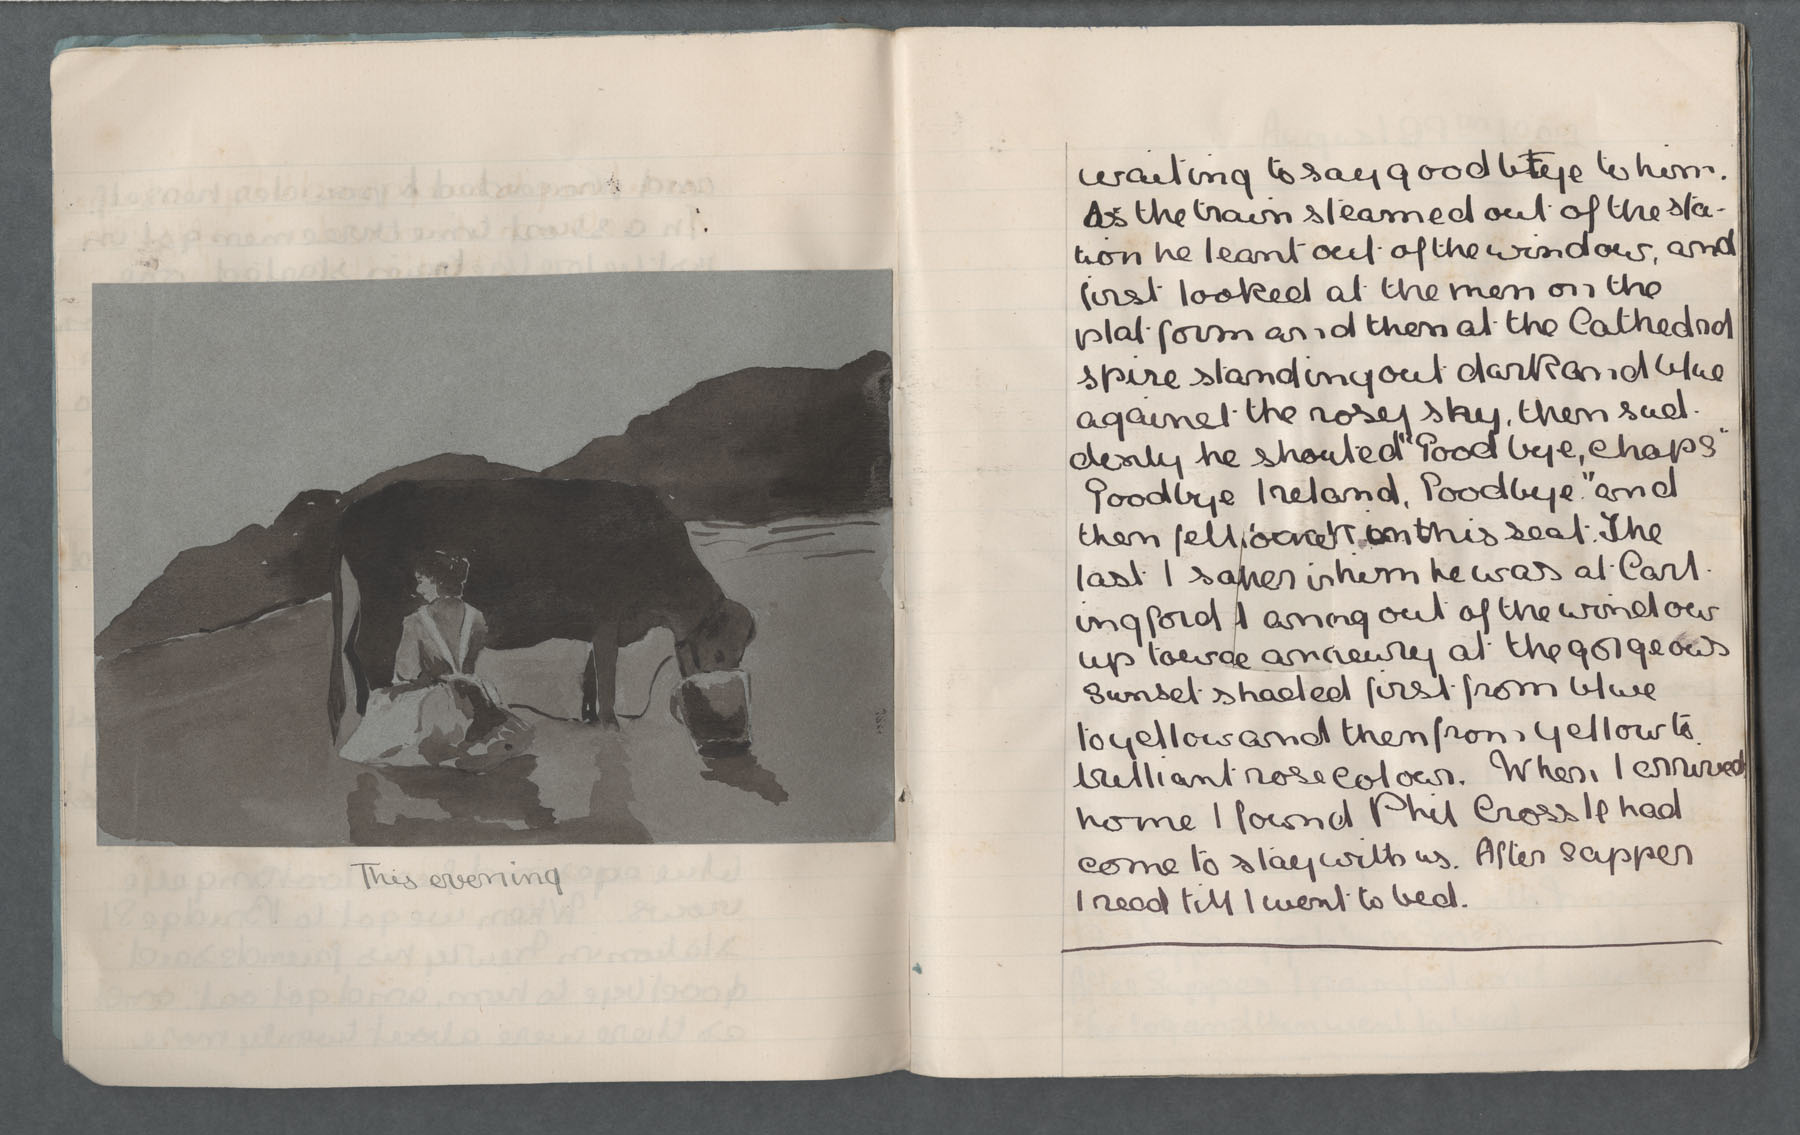 This evening
waiting to say goodbye to him.
As the train steamed out of the sta-
tion he leant out of the window, and
first looked at the men on the
platform and then at the Cathedral
spire standing out dark and blue
against the rosey sky, then sud-
denly he shouted "Good bye, chaps"
Goodbye Ireland, Goodbye." and
then fell back on this seat. The
last I saw him he was at Carl-
ingford
out of the window
up
at the gorgeous
sunset shaded first from blue
to yellow and then from yellow to
brilliant rose colour. When I arrived
home I found Phil Crossle had
come to stay with us. After supper
I read till I went to bed.